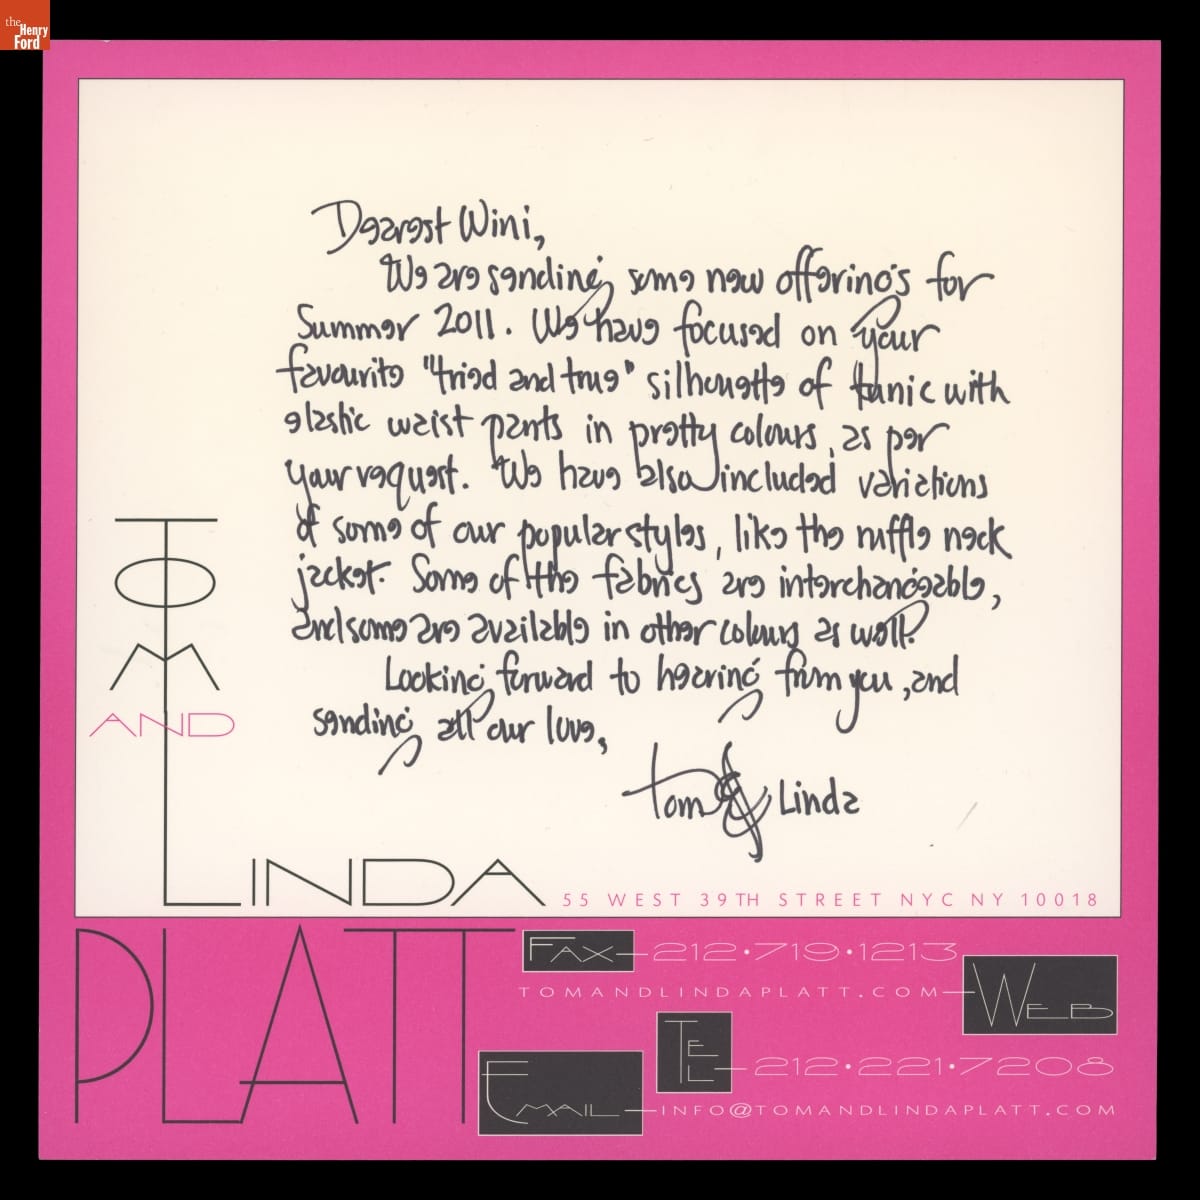 the
Henry
Ford
Dearest Wini,
We are sending some new offerings for
Summer 2011. We have focused on your
favourite "tried and true" silhouette of tunic with
elastic waist pants in pretty colours, as per
your request. We have also included variations
of some of our popular styles, like the ruffle neck
jacket. Some of the fabrics are interchangeable,
and some are available in other colours as well.
Looking forward to hearing from you, and
sending all our love,
Tom & Linda
TOM
AND
LINDA
55 WEST 39TH STREET NYC NY 10018
PLATT
FAX 212·719·1213
TOMANDLINDAPLATT.COM WEB
TEL 212·221·7208
EMAIL INFO@TOMANDLINDAPLATT.COM